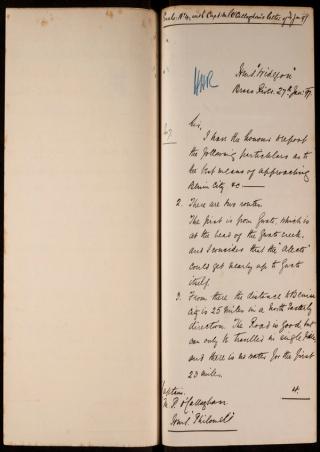 Enclo. No. 4, with Capt. M. P. O'Callaghan's letter of Jan. 97
HHR
H.M.S. "Widgeon"
Brass River. 27th Jan: 97.
Sir,
I have the honour to report
the following particulars as to
the best means of approaching
Benin City &c —
2. There are two routes
The first is from Gwato, which is
at the head of the Gwato creek,
and I consider that the "Alecto"
could get nearly up to Gwato
itself.
3. From there the distance to Benin
City is 25 miles in a North Easterly
direction. The Road is good, but
can only be travelled in single file
and there is no water for the first
23 miles.
4.
Captain.
M. P. O'Callaghan
H.M.S. "Philomel"